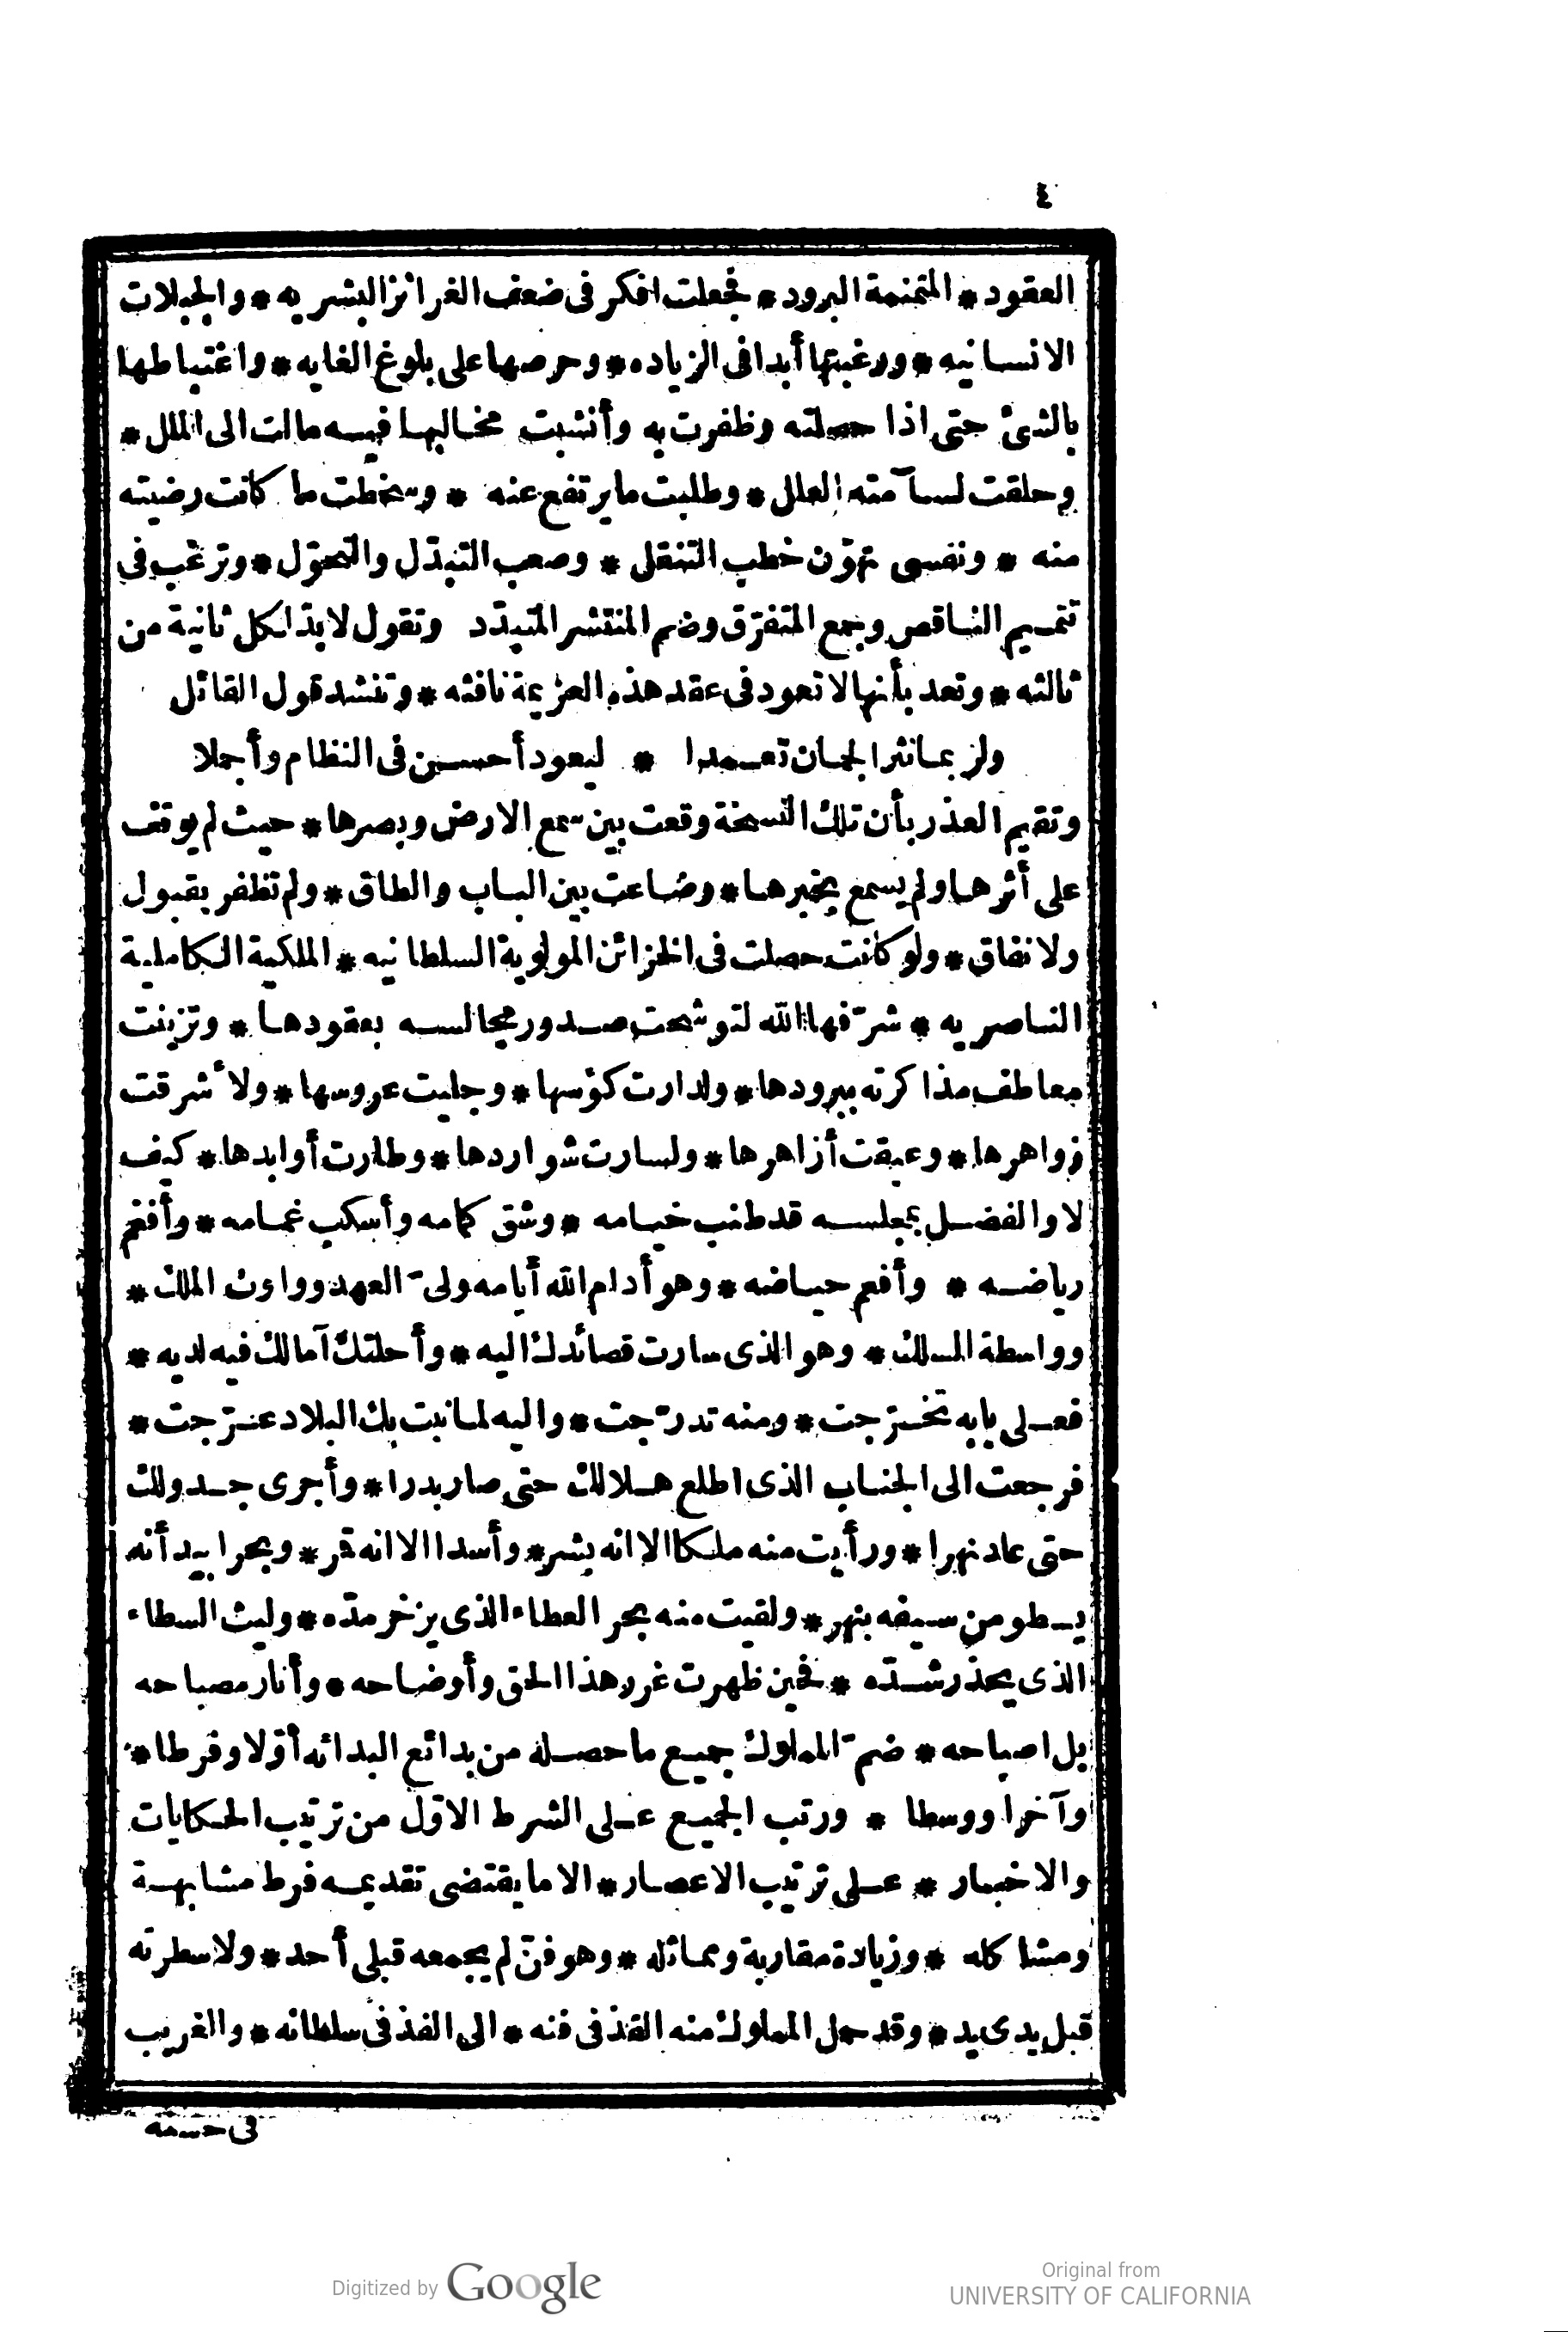 ٤
العقود * المتمنمة البرود * فجعلت افكر فى ضعف الغرائز البشريه * والجبلات
الانسانيه * ورغبتها أبدا فى الزياده * وحرصها على بلوغ الغايه * واغتباطها
بالشئ حتى اذا حصلته وظفرت به وأنشبت مخالبها فيسه مالت الى الملل *
وحلقت لسآمته العلل * وطلبت ما يرتفع عنه * وسخطت ما كانت رضيته
منه * ونفسى تهوّن خطب التنقل * وصعب التبدّل والتحوّل * وترغب فى
تتميم الناقص وجمع المتفرّق وضم المنتشر المتبدّد وتقول لابدّ لكل ثانية من
ثالثه * وتعد بأنها لا تعود فى عقد هذه العزيمة نافثه * وتنشد قول القائل
ولربما نثر الجمان تعمدا * ليعود أحسن فى النظام وأجملا
وتقيم العذر بأن تلك النسخة وقعت بين سمع الارض وبصرها * حيث لم يوقف
على أثرها ولم يسمع بخبرها * وضاعت بين الباب والطاق * ولم تظفر بقبول
ولا نفاق * ولو كانت حصلت فى الخزائن المولوية السلطانيه * الملكية الكاملية
الناصريه * شرّفها الله لتوشحت صدور مجالسه بعقودها * وتزينت
معاطف مذاكرته ببرودها * ولدارت كؤسها * وجليت عروسها * ولأشرقت
زواهرها * وعبقت أزاهرها * ولسارت شواردها * وطارت أوابدها * كيف
لا والفضل بمجلسه قد طنب خيامه * وشق كمامه وأسكب غمامه * وأفغم
رياضه * وأفعم حياضه * وهو أدام الله أيامه ولىّ العهد ووارث الملك *
وواسطة السلك * وهو الذى سارت قصائدك اليه * وأحلتك آمالك فيه لديه *
فعلى بابه تخرّجت * ومنه تدرّجت * واليه لما نبت بك البلاد عرّجت *
فرجعت الى الجناب الذى اطلع هلالك حتى صار بدرا * وأجرى جدولك
حتى عاد نهرا * ورأيت منه ملكا الا انه بشر * وأسدا الا انه قمر * وبحرا بيد أنه
يسطو من سيفه بنهر * ولقيت منه بحر العطاء الذى يزخر مدّه * وليث السطاء
الذى يحذر شدّه * فحين ظهرت غرر هذا الحق وأوضاحه * وأنار مصباحه
بل اصباحه * ضمّ المملوك جميع ما حصله من بدائع البدائه أوّلا وفرطا *
وآخرا ووسطا * ورتب الجميع على الشرط الاوّل من ترتيب الحكايات
والاخبار * على ترتيب الاعصار * الا ما يقتضى تقديمه فرط مشابهة
ومشاكله * وزيادة مقاربة ومماثله * وهو فنّ لم يجمعه قبلى أحد * ولا سطرته
قبل يدى يد * وقد حمل المملوك منه الفذ فى فنه * الى الفذ فى سلطانه * والغريب
فى حسنه
Digitized by Google
Original from
UNIVERSITY OF CALIFORNIA